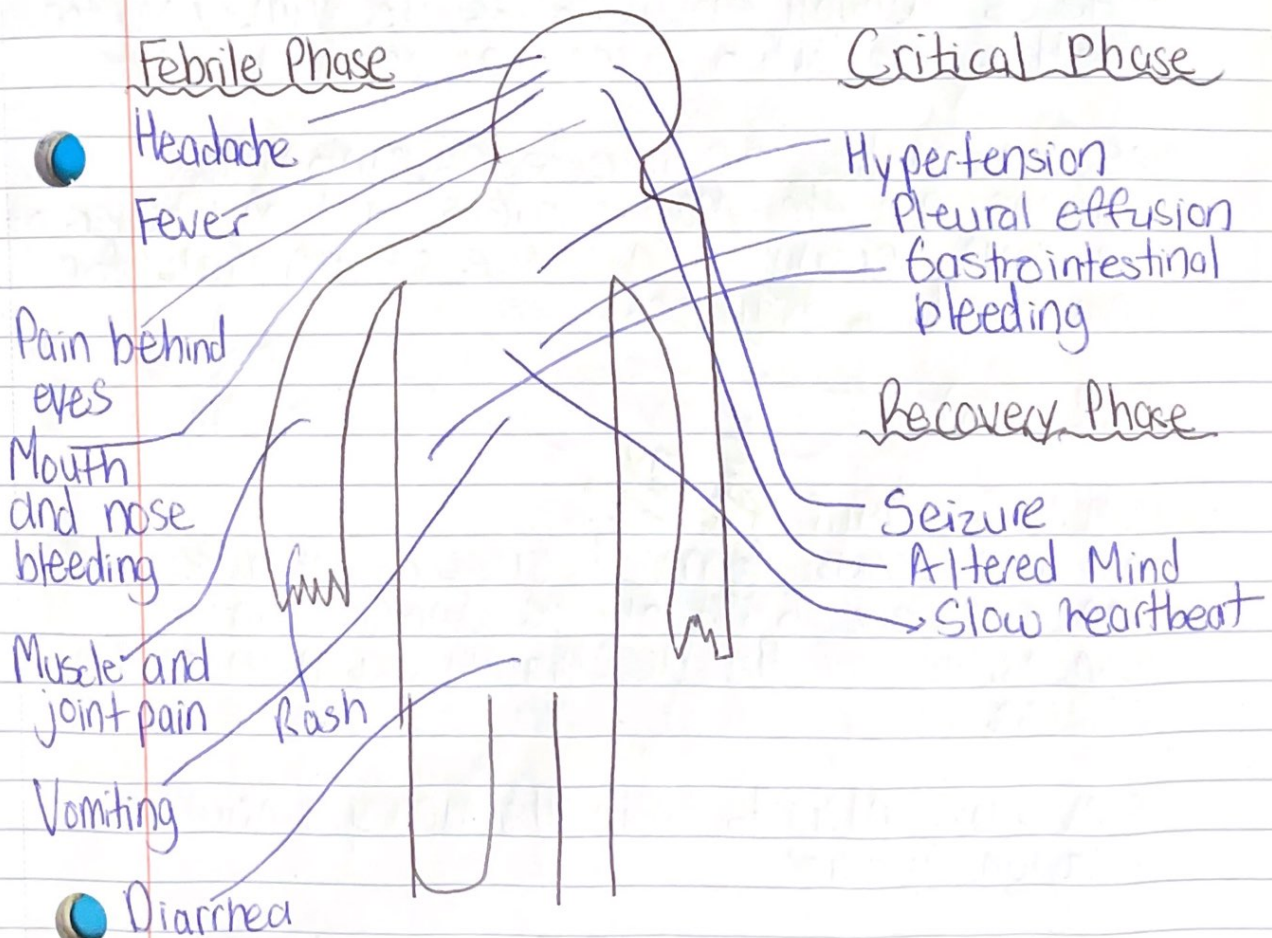 Febrile Phase
Headache
Fever
Pain behind
eyes
Mouth
and nose
bleeding
Muscle and
joint pain
Rash
Vomiting
Diarrhea
Critical Phase
Hypertension
Pleural effusion
Gastrointestinal
bleeding
Recovery Phase
Seizure
Altered Mind
Slow heartbeat